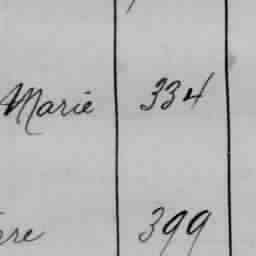 Marie 334
ere 399